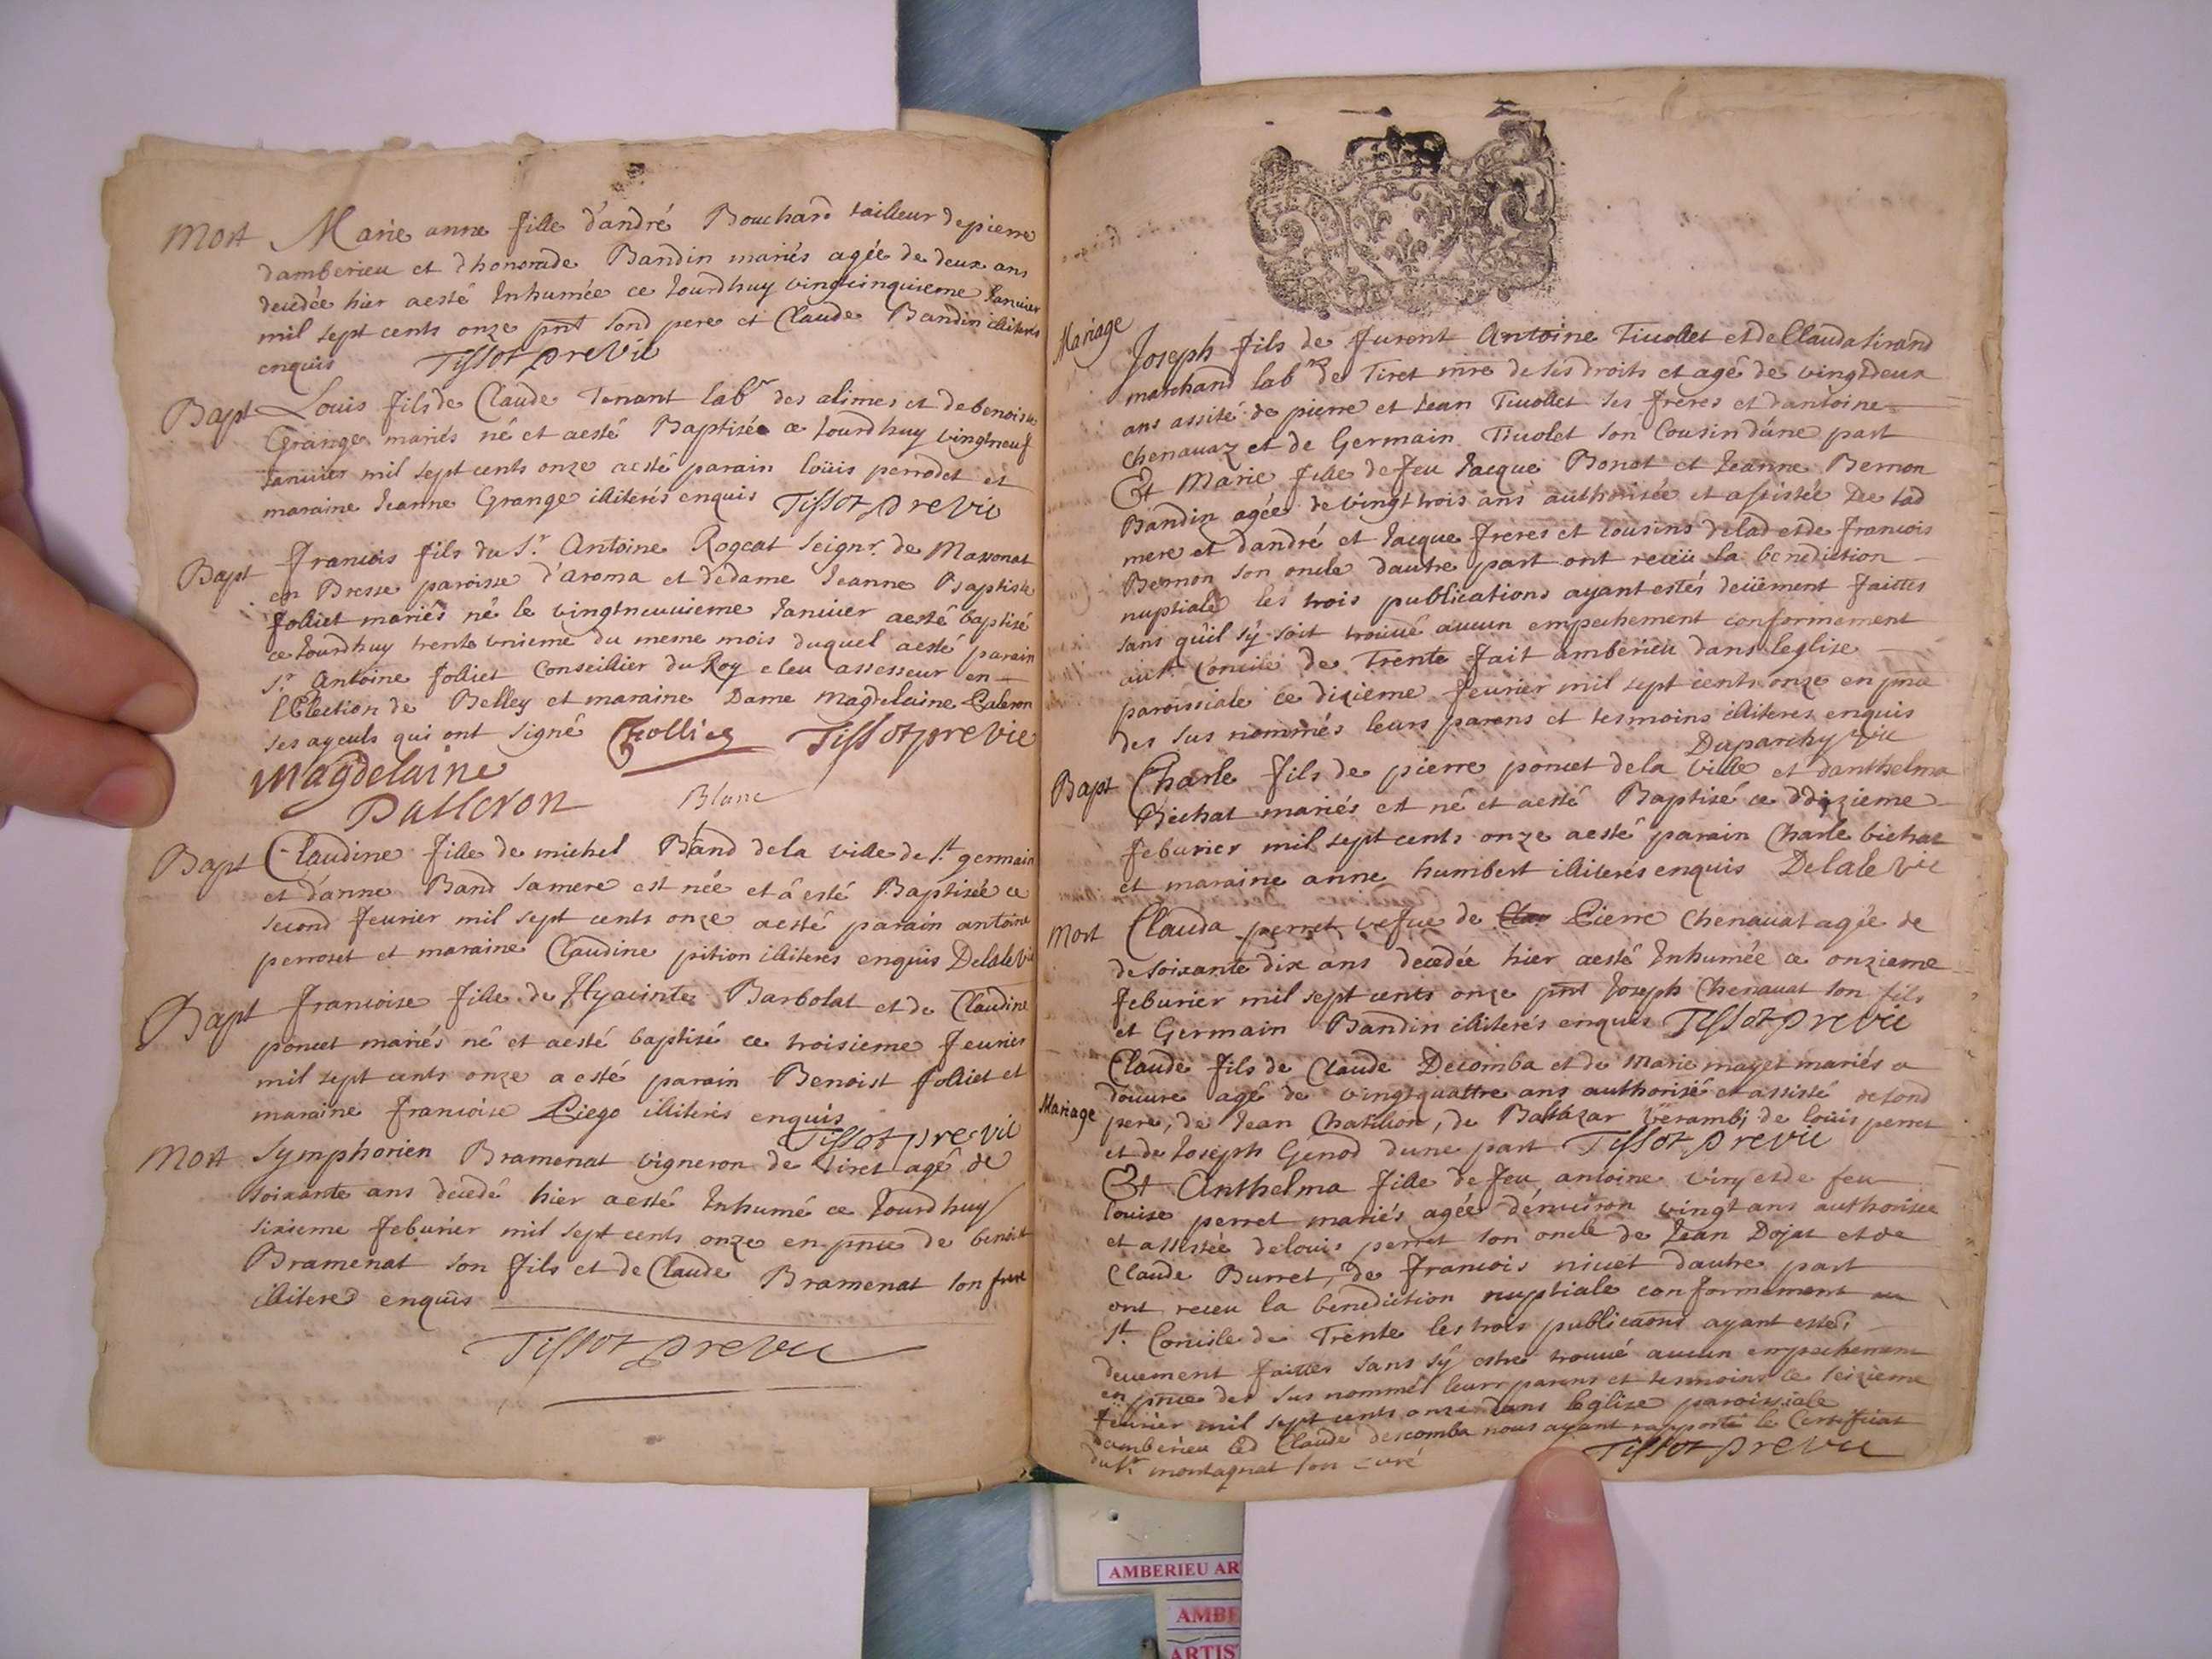 Mort Marie anne fille d'andré Bouchard tailleur de pierre
d'amberieu et d'honorade Bandin mariés agée de deux ans
decedée hier a esté Inhumée ce Jourdhuy vingtcinquieme Janvier
mil sept cents onze pnt sond pere et Claude Bandin illiterés
enquis Tissot pre vic
Bapt Louis fils de Claude Tenant labr des alimes et de benoiste
Grange mariés né et a esté Baptisée ce Jourdhuy vingtneuf
Janvier mil sept cents onze a esté parain loüis perrodet et
maraine Jeanne Grange illiterés enquis Tissot pre vic
Bapt francois fils du Sr. Antoine Rogeat Seignr. de Marsonat
en Bresse paroisse d'aroma et de dame Jeanne Baptiste
folliet mariés né le vingtneuvieme Janvier a esté baptisé
ce Jourdhuy trente unieme du mesme mois duquel a esté parain
Sr. Antoine folliet Conseillier du Roy eleu assesseur en
l'Election de Belley et maraine Dame Magdelaine
ses ayeuls qui ont signé folliet Tissot pre vic
Magdelaine
Dalleron Blanc
Bapt Claudine fille de michel Band de la ville de st. germain
et d'anne Band sa mere est née et â esté Baptisée ce
second fevrier mil sept cents onze a esté parain antoine
perroset et maraine Claudine pition illiterés enquis Delale vic
Bapt francoise fille de Hyacinte Barbolat et de Claudine
poncet mariés né et a esté baptisé ce troisieme fevrier
mil sept cents onze a esté parain Benoist folliet et
maraine francoise Liego illiterés enquis
Tissot pre vic
Mort Symphorien Bramenat vigneron de Tiret agé de
soixante ans decedé hier a esté Inhumé ce Jourdhuy
sixieme feburier mil sept cents onze en pnce de benoit
Bramenat son fils et de Claude Bramenat son frere
illiteres enquis
Tissot pre vic
Mariage Joseph fils de furent Antoine Tivollet et de Clauda Sirand
marchand labr de Tiret mre de ses droits et agé de vingtdeux
ans assité de pierre et Jean Tivollet ses freres et d'antoine
chenavaz et de Germain Tivolet son Cousin d'une part
Et Marie fille de feu Jacque Bonot et Jeanne Bernon
Bandin agée de vingt trois ans authorisée et assistée de lad
mere et d'andré et Jacque freres et cousins de lad et de francois
Bernon son oncle dautre part ont receü la benediction
nuptiale les trois publications ayant estés deüement faittes
sans qu'il s'y soit trouvé aucun empechement conformement
au st. Concile de Trente fait ambérieu dans leglise
paroissiale ce dixieme feurier mil sept cents onze en pnce
des sus nommés leurs parens et tesmoins illiteres enquis
Duparchy vic
Bapt Charle fils de pierre poncet de la Ville et d'anthelma
Bichat mariés est né et a esté Baptisé ce dixieme
feburier mil sept cents onze a esté parain Charle bichat
et maraine anne humbert illiterés enquis Delale vic
Mort Clauda perret vefue de Pierre Chenavat agée de
de soixante dix ans decedée hier a esté Inhumée ce onzieme
feburier mil sept cents onze pnt Joseph Chenavat son fils
et Germain Bandin illiterés enquis Tissot pre vic
Mariage Claude fils de Claude Decomba et de Marie mayet mariés a
douvre agé de vingtquattre ans authorisé et assisté de sond
pere, de Jean Chatillon, de Baltazar Verambj de loüis perret
et de Joseph Genod d'une part Tissot pre vic
Et Anthelma fille de feu antoine viry et de feu
louise perret mariés agée d'environ vingt ans authorisée
et assistée de louis perret son oncle de Jean Dojat et de
Claude Burret, de francois nivet dautre part
ont receu la benediction nuptiale conformement au
st. Concile de Trente les trois publicaons ayant estés
deuement faittes sans s'y estre trouvé aucun empechement
en pnce des sus nommés leurs parens et tesmoins ce seizieme
fevrier mil sept cents onze dans leglise paroissiale
d'amberieu led Claude descomba nous ayant rapporté le Certificat
du Sr. montagnat son curé Tissot pre vic
AMBERIEU AR
AMBE
ARTIS